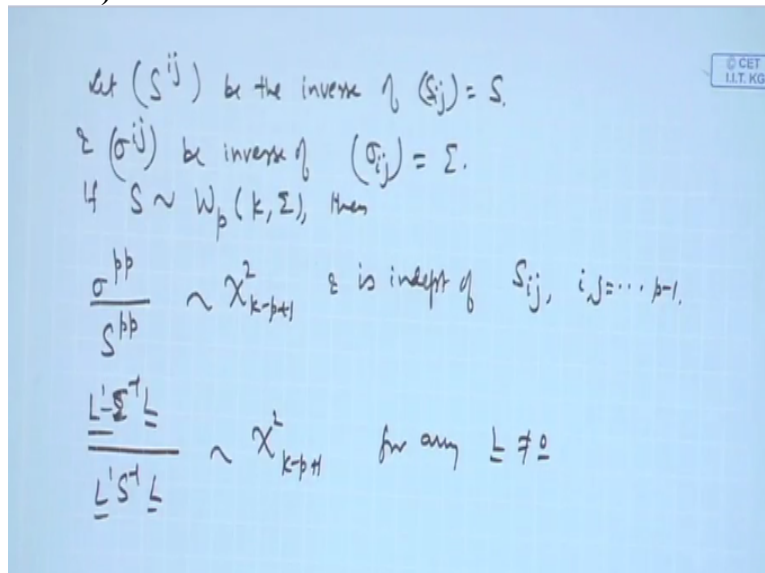 Let (S^{ij}) be the inverse of (S_{ij}) = S.
© CET
I.I.T. KG
& (σ^{ij}) be inverse of (σ_{ij}) = Σ.
If S ~ W_p (k, Σ), then
σ^{pp} / S^{pp} ~ χ²_{k-p+1} & is indept of S_{ij}, i,j=... p-1.
L'Σ⁻¹L / L'S⁻¹L ~ χ²_{k-p+1} for any L ≠ 0